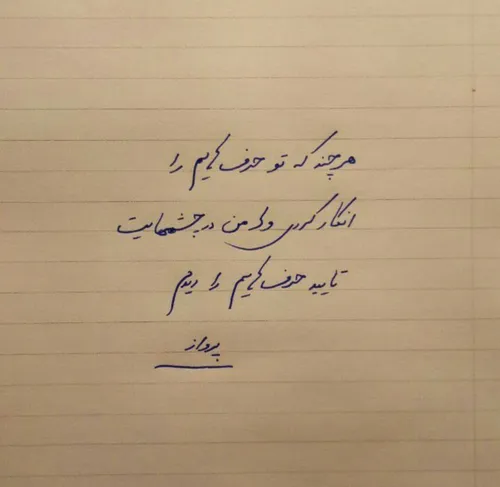 هرچند که تو حرف هایم را
انکار کردی ولی من در چشمهایت
تایید حرف هایم را دیدم
پرواز